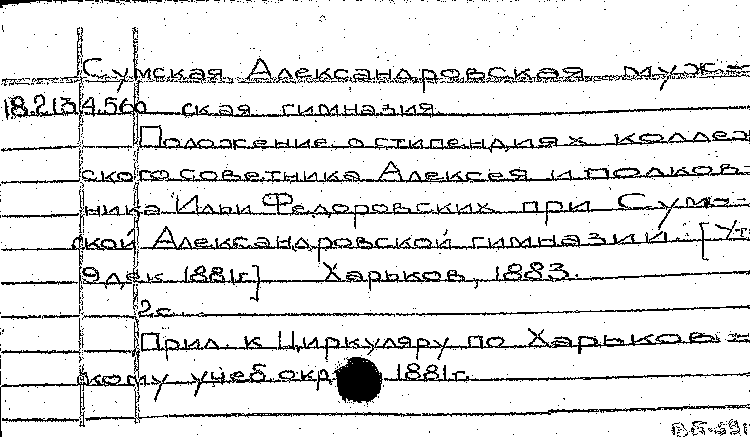 Сумская Александровская муж-
18.213 4.56а ская гимназия.
Положение о стипендиях коллеж
ского советника Алексея и полков-
ника Ильи Федоровских при Сум-
ской Александровской гимназии. [Ут
9 дек. 1881г.] Харьков, 1883.
2с.
Прил. к Циркуляру по Харьков-
кому учеб. окр. 1881г.